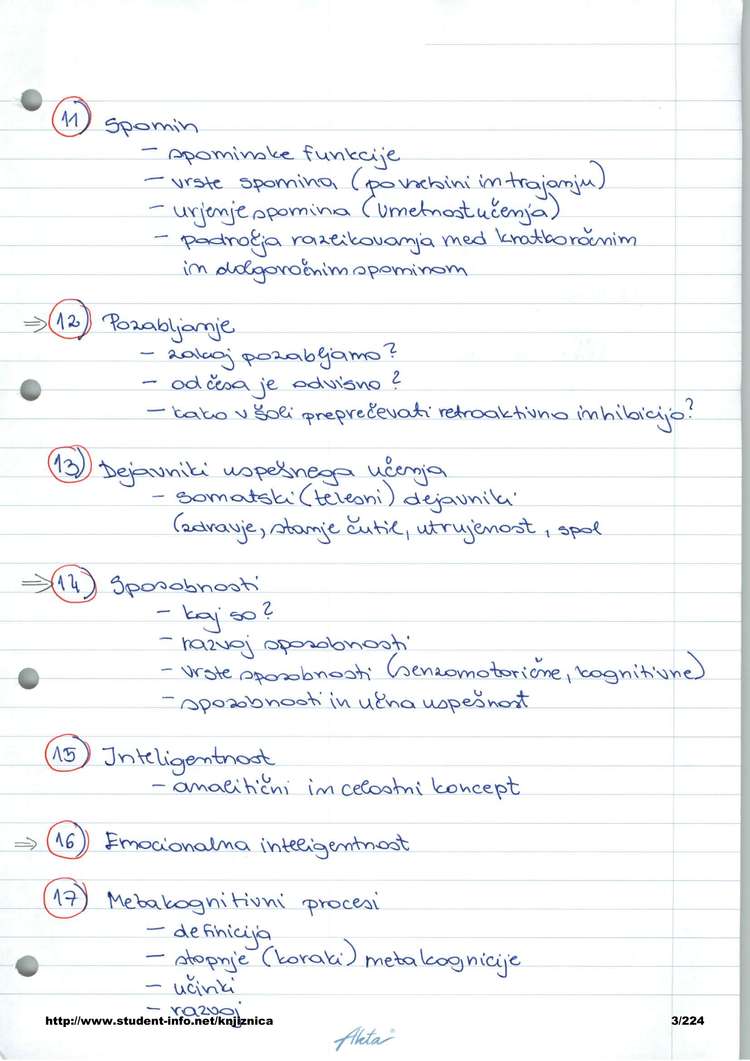 11 Spomin
- spominske funkcije
- vrste spomina (po vsebini in trajanju)
- urjenje spomina (umetnost učenja)
- področja razlikovanja med kratkoročnim
in dolgoročnim spominom
⇒ 12 Pozabljanje
- zakaj pozabljamo?
- od česa je odvisno?
- kako v šoli preprečevati retroaktivno inhibicijo?
13 Dejavniki uspešnega učenja
- somatski (telesni) dejavniki
(zdravje, stanje čutil, utrujenost, spol
⇒ 14 Sposobnosti
- kaj so?
- razvoj sposobnosti
- vrste sposobnosti (senzomotorične, kognitivne)
- sposobnosti in učna uspešnost
15 Inteligentnost
- analitični in celostni koncept
⇒ 16 Emocionalna inteligentnost
17 Metakognitivni procesi
- definicija
- stopnje (koraki) metakognicije
- učinki
- razvoj
http://www.student-info.net/knjiznica 3/224
Aleta